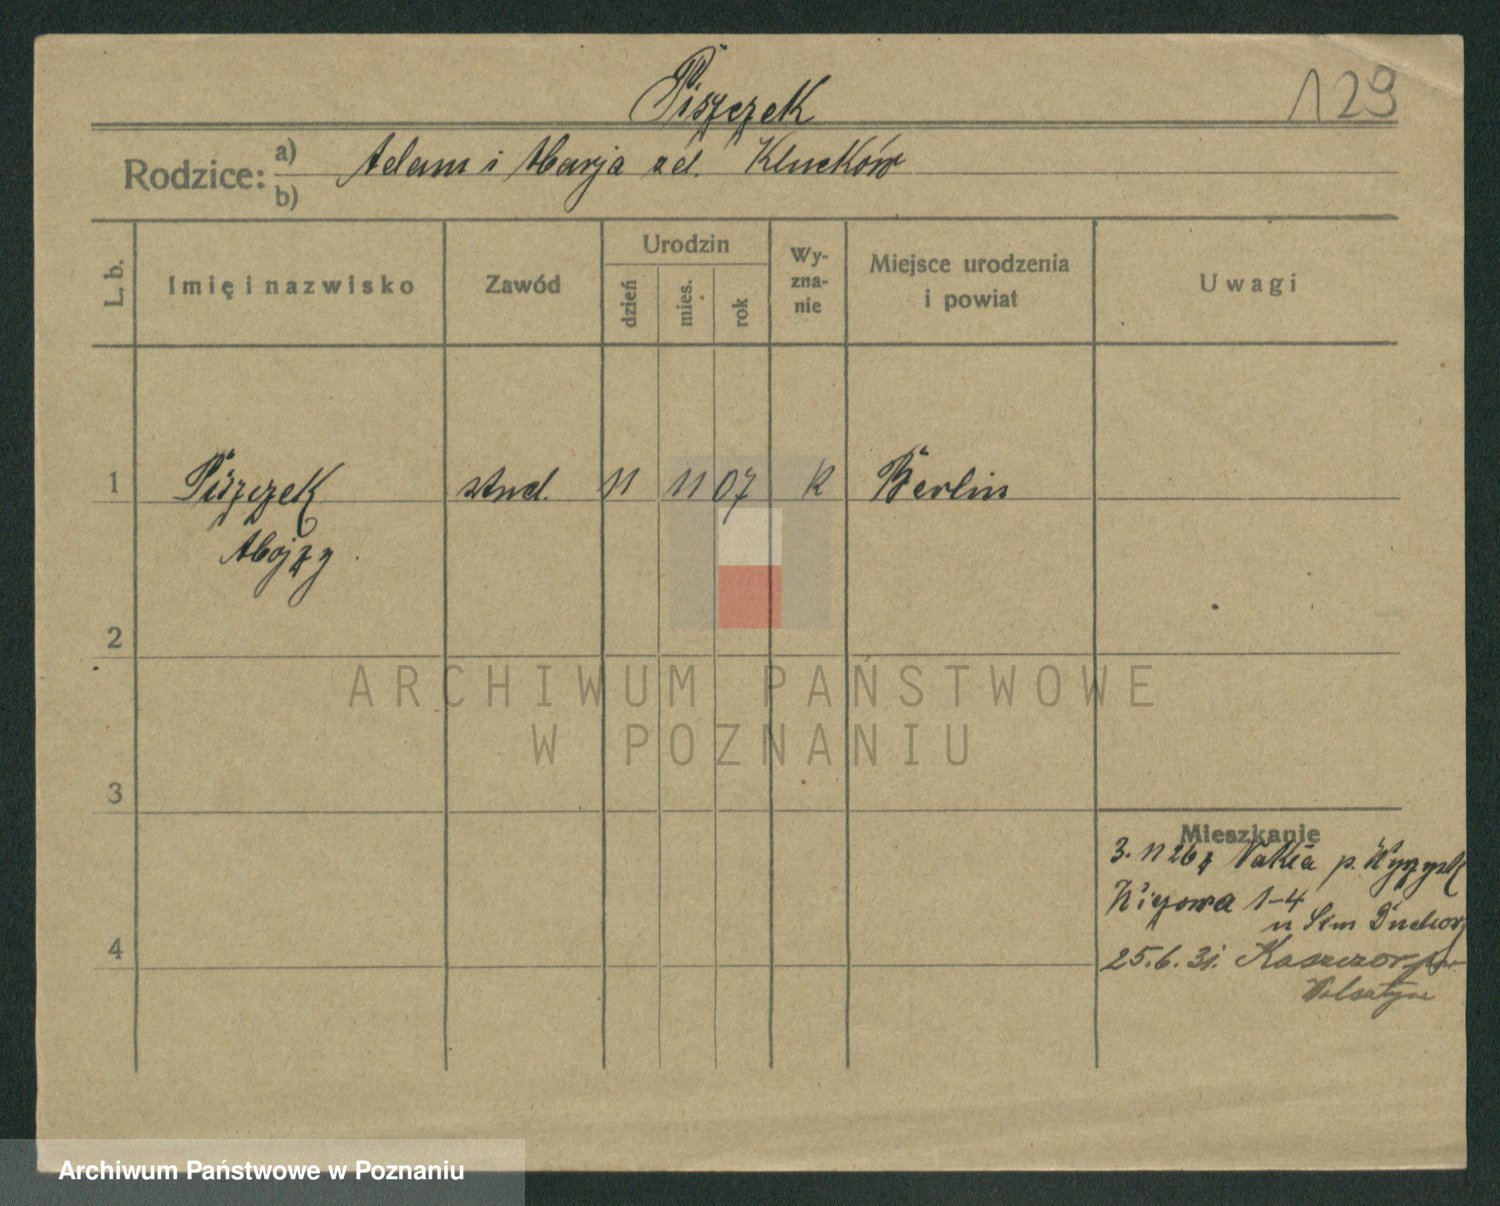 Piszczek
129
Rodzice: a) Adam i Marja zd. Kluckow
b)
L. b.
Imię i nazwisko
Zawód
Urodzin
dzień
mies.
rok
Wy-
zna-
nie
Miejsce urodzenia
i powiat
Uwagi
1 Piszczek stud. 11 11 07 k Berlin
2
3
Mieszkanie
3. 11 26 z p. Wyrzysk
1-4
u Sem Duchow
4
25. 6. 31. Kaszczor pow
Wolsztyn
ARCHIWUM PAŃSTWOWE
W POZNANIU
Archiwum Państwowe w Poznaniu